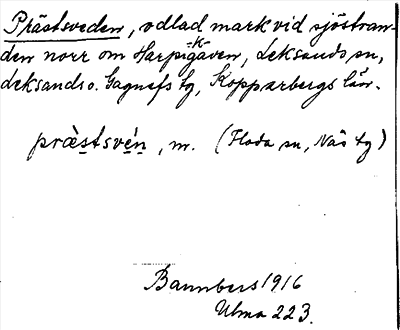 Prästsveden, odlad mark vid sjöstran-
den norr om Harpikgaven, Leksands sn,
Leksands o. Gagnefs tg, Kopparbergs län.
præ̀stsvèn, m. (Floda sn, Näs tg)
Bannbers 1916
Ulma 223.